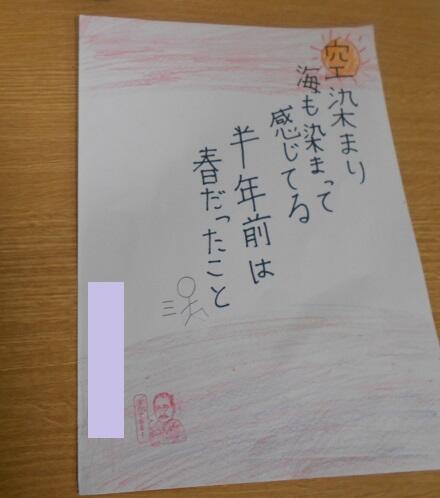 空染まり
海も染まって
感じてる
半年前は
春だったこと